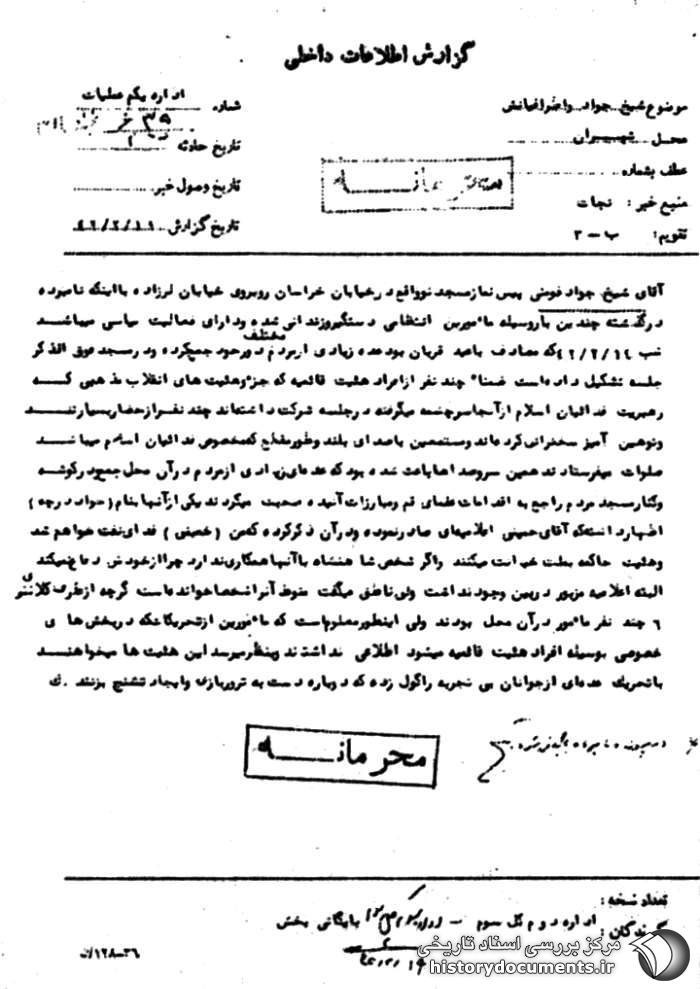 گزارش اطلاعات داخلی
موضوع شیخ جواد واطرافیانش
محل تهران
عطف بشماره
منبع خبر: نجات
تقویم: ب-۲
اداره یکم عملیات
شماره
تاریخ حادثه
تاریخ وصول خبر
تاریخ گزارش ۴۲/۲/۱۱
آقای شیخ جواد فومنی پیش نماز مسجد نو واقع در خیابان خراسان روبروی خیابان لرزاده با اینکه نامبرده
در گذشته چندین بار وسیله مأمورین انتظامی دستگیر و زندانی شده و دارای فعالیت سیاسی میباشد
شب ۴۲/۲/۱۴ که مصادف با عید قربان بوده عده زیادی از مردم مختلف در ور خود جمع کرده و در مسجد فوق الذکر
جلسه تشکیل داده است ضمنا" چند نفر از افراد هئیت قائمیه که جزو هئیت های انقلاب مذهبی که
رهبریت فدائیان اسلام از آنجا سرچشمه میگرفته در جلسه شرکت داشته اند چند نفر از حضار بسیار تند
و توهین آمیز سخنرانی کرده اند و مستمعین با صدای بلند و طور مقطع که مخصوص فدائیان اسلام میباشد
صلوات میفرستادند همین سر و صداها باعث شده بود که عده ای زیادی از مردم در آن محل جمع در گوشه
و کنار مسجد مردم راجع به اقدامات علمای قم و مبارزات آینده صحبت میکردند یکی از آنها بنام (جواد درچه)
اظهار داشته که آقای خمینی اعلامیه ای صادر نموده و در آن ذکر کرده که من (خمینی) فدای نفت خواهم شد
و هئیت حاکمه بملت خیانت میکنند و اگر شخص شاهنشاه با آنها همکاری ندارد چرا از خودش دفاع نمیکند
البته اعلامیه مزبور در بین وجود نداشت ولی ناطق میگفت منوط آنرا شخصا خوانده است گرچه از طرف کلانتری
۶ چند نفر مأمور در آن محل بودند ولی اینطور معلوم است که مأمورین از تحریکاتیکه در بخش های
خصوصی بوسیله افراد هئیت قائمیه میشود اطلاعی نداشتند و بنظر میرسد این هئیت ها میخواهند
با تحریک عده ای از جوانان بی تجربه را گول زده که دوباره دست به ترور بازی و ایجاد تشنج بزنند . ك
محرمانه
تعداد نسخه:
گیرندگان: اداره دوم کل سوم - بایگانی بخش
۳۶-۱۲۸/ات
مرکز بررسی اسناد تاریخی
historydocuments.ir